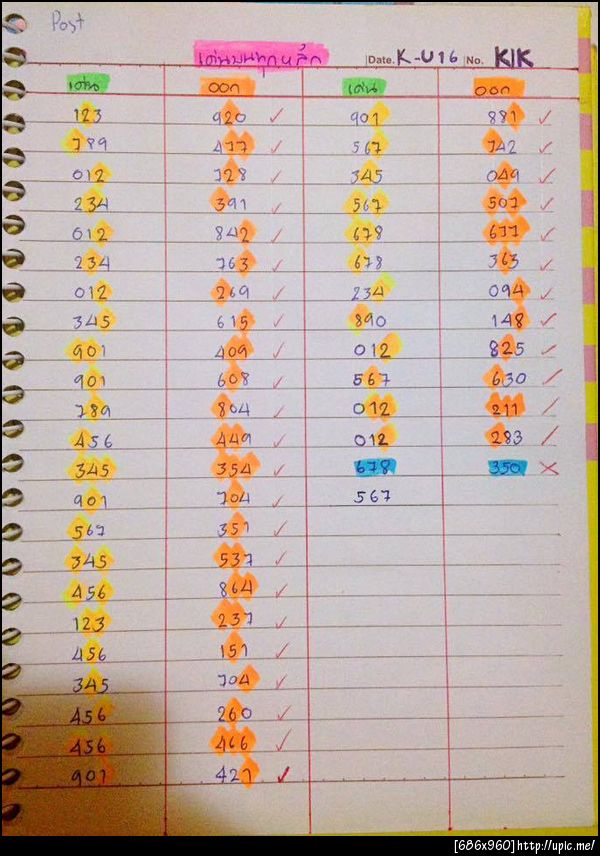 Post
เด่นบนทุกหลัก Date. K-U16 No. KIK
เด่น ออก เด่น ออก
123 920 ✓ 901 881 ✓
789 477 ✓ 567 742 ✓
012 728 ✓ 345 049 ✓
234 391 ✓ 567 507 ✓
012 842 ✓ 678 677 ✓
234 763 ✓ 678 363 ✓
012 269 ✓ 234 094 ✓
345 615 ✓ 890 148 ✓
901 409 ✓ 012 825 ✓
901 608 ✓ 567 630 ✓
789 804 ✓ 012 211 ✓
456 449 ✓ 012 283 ✓
345 354 ✓ 678 350 ✗
901 704 ✓ 567
567 351 ✓
345 537 ✓
456 864 ✓
123 237 ✓
456 151 ✓
345 704 ✓
456 260 ✓
456 466 ✓
901 421 ✓
[686x960]http://upic.me/